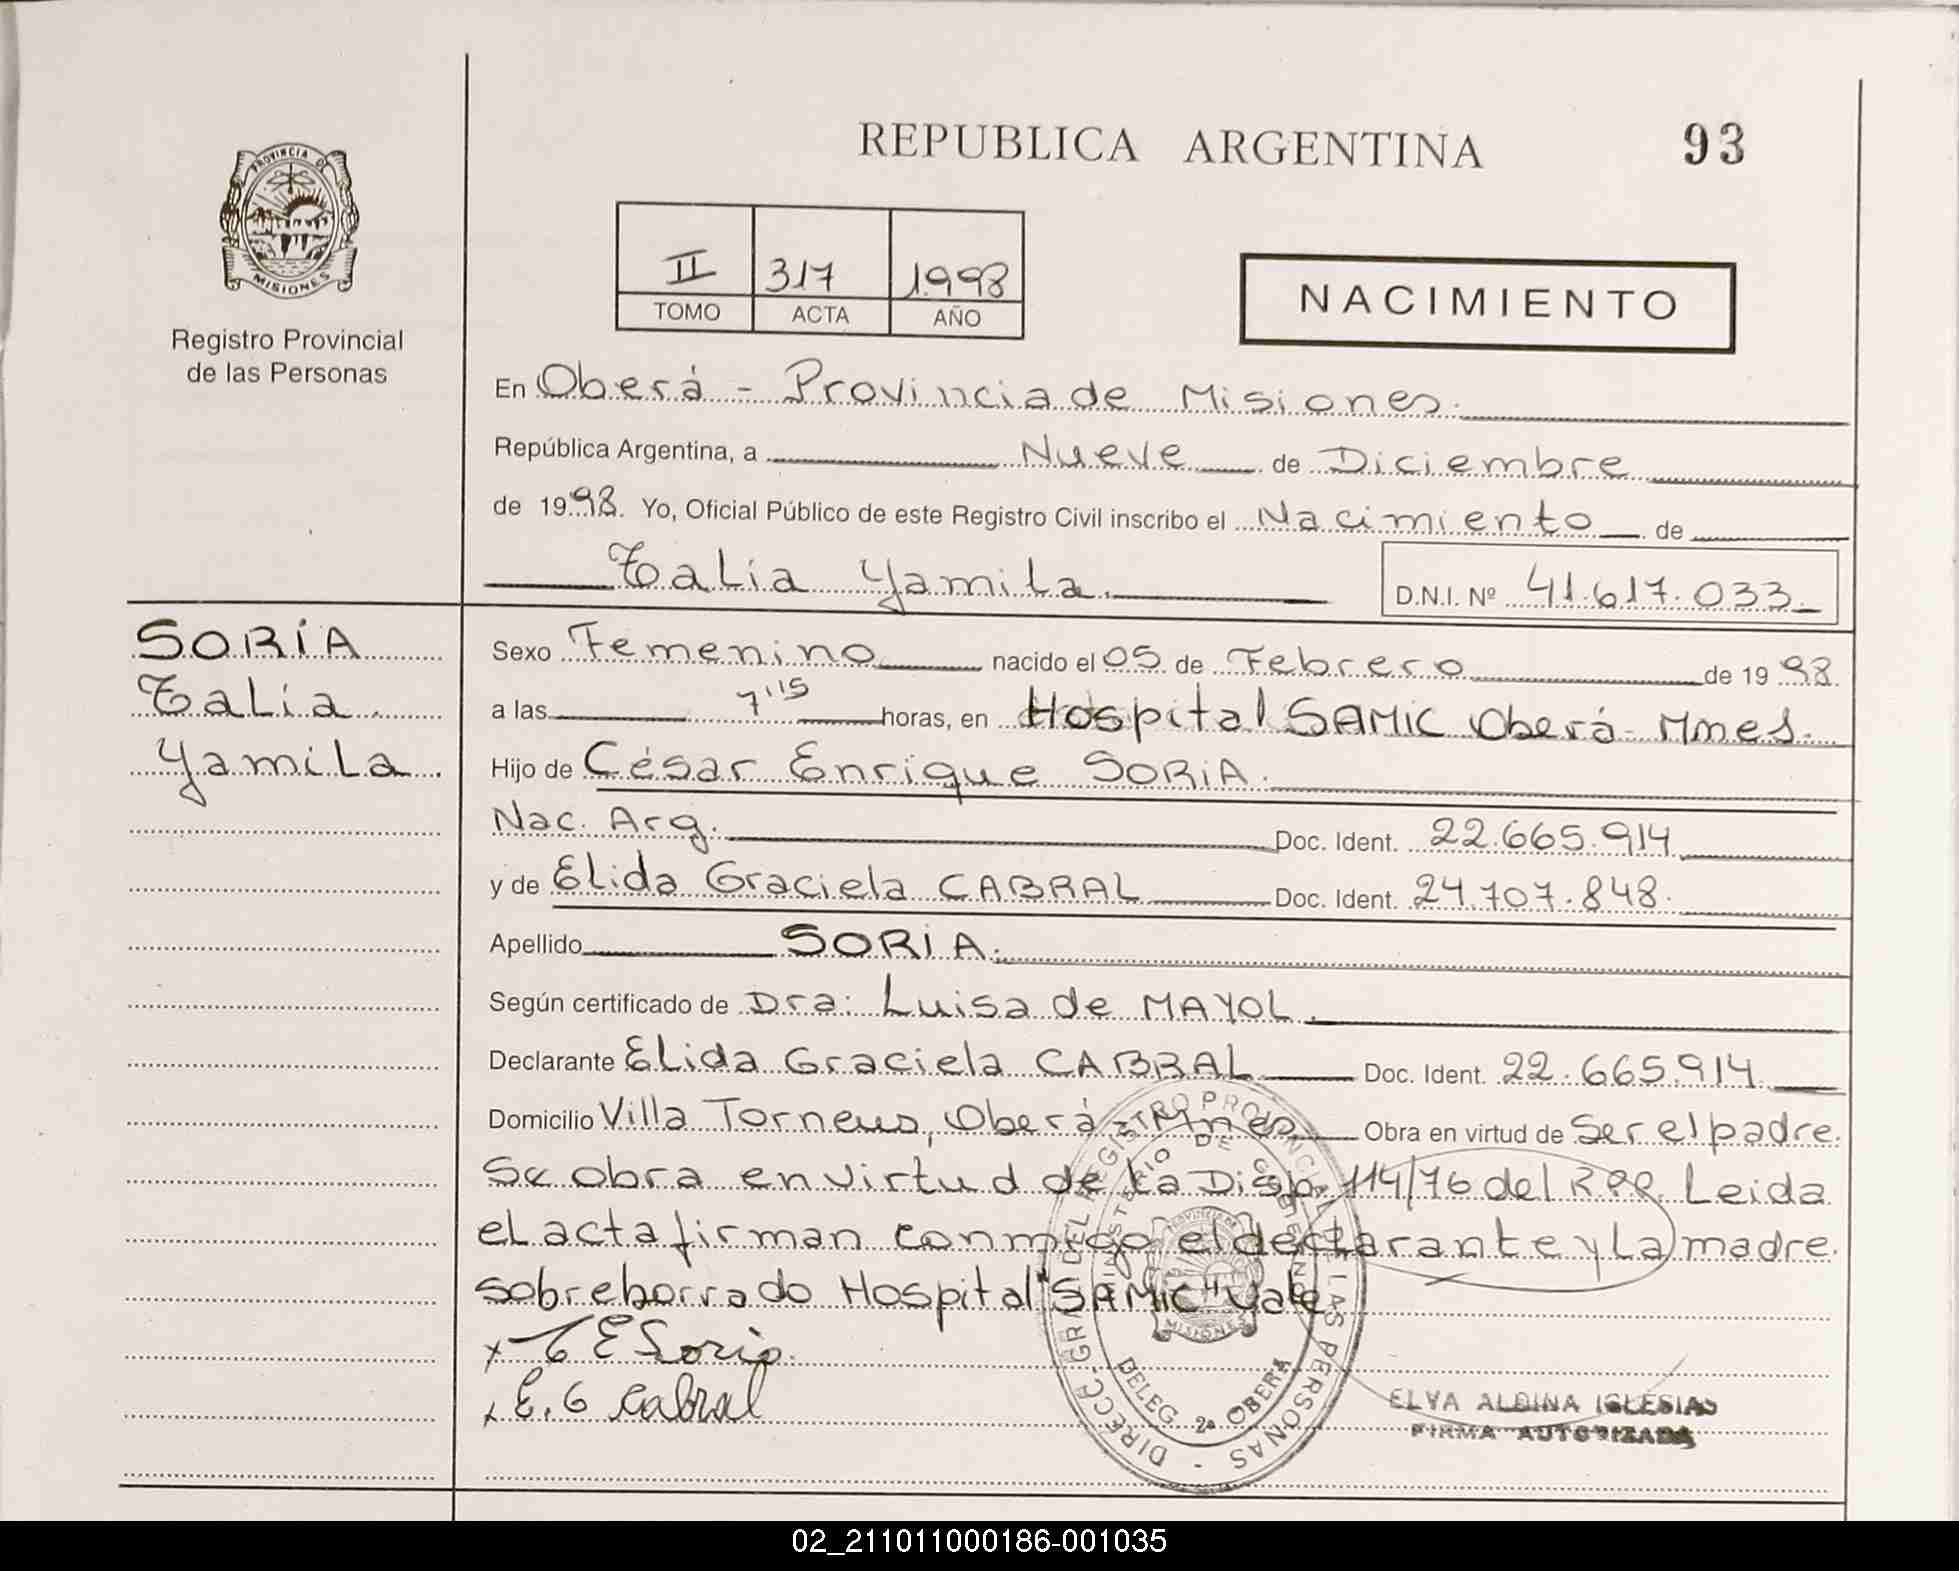 REPUBLICA ARGENTINA 93
PROVINCIA DE
MISIONES
Registro Provincial
de las Personas
II 317 1.998
TOMO ACTA AÑO
NACIMIENTO
En Oberá - Provincia de Misiones.
República Argentina, a Nueve de Diciembre
de 1998. Yo, Oficial Público de este Registro Civil inscribo el Nacimiento de
Talía Yamila. D.N.I. Nº 41.617.033.
SORIA
Talía
Yamila.
Sexo Femenino nacido el 05 de Febrero de 19 98.
a las 7'15 horas, en Hospital SAMIC Oberá - Mnes.
Hijo de César Enrique SORIA.
Nac. Arg. Doc. Ident. 22.665.914
y de Elida Graciela CABRAL Doc. Ident. 24.707.848.
Apellido SORIA.
Según certificado de Dra: Luisa de MAYOL.
Declarante Elida Graciela CABRAL Doc. Ident. 22.665.914
Domicilio Villa Torneus, Oberá - Mnes. Obra en virtud de Ser el padre.
Se obra en virtud de la Disp. 114/76 del R.P.P. Leida
el acta firman conmigo el declarante y la madre.
sobreborrado Hospital "SAMIC" Vale
x C E Soria.
x E. G Cabral
DIRECC. GRAL. DEL REGISTRO PROVINCIAL DE LAS PERSONAS -
MINISTERIO DE GOBIERNO
PROVINCIA DE
MISIONES
DELEG. 2ª OBERÁ
ELVA ALBINA IGLESIAS
FIRMA AUTORIZADA
02_211011000186-001035